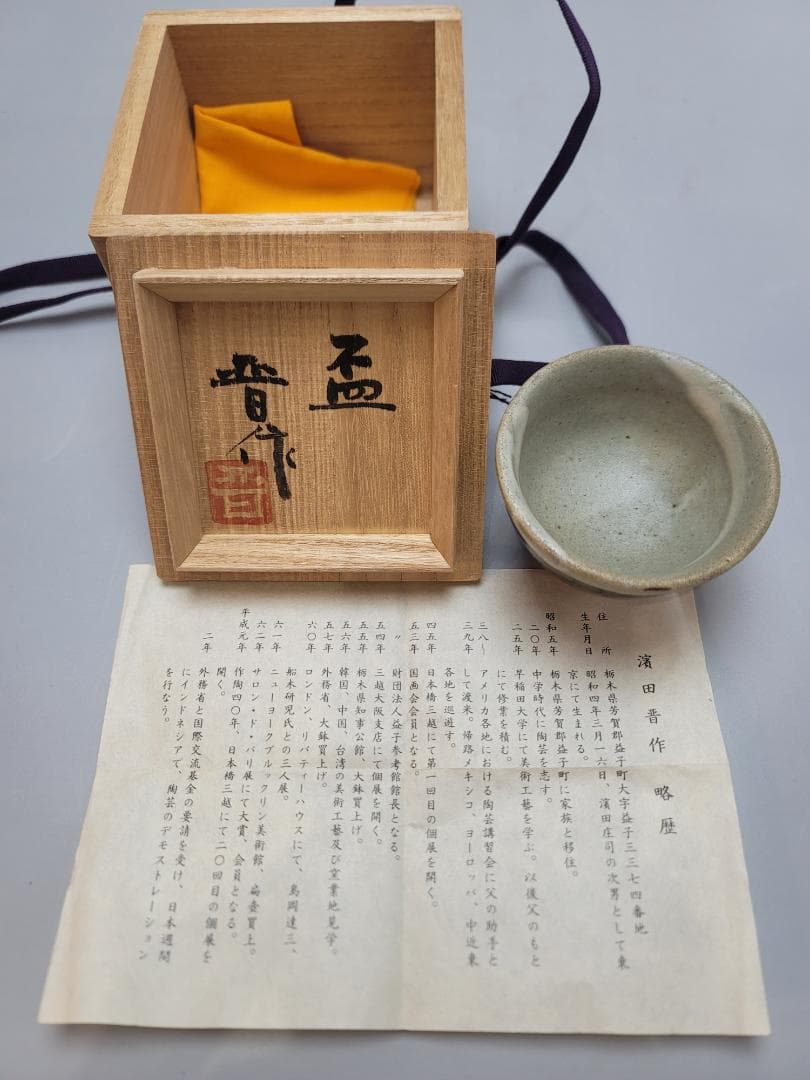 盃
晋作
晋
濱田晋作略歴
住所 栃木県芳賀郡益子町大字益子三三七四番地
生年月日 昭和四年三月一六日、濱田庄司の次男として東
京にて生まれる。
昭和五年 栃木県芳賀郡益子町に家族と移住。
二〇年 中学時代に陶芸を志す。
二五年 早稲田大学にて美術工藝を学ぶ。以後父のもと
にて修業を積む。
三八〜 アメリカ各地における陶芸講習会に父の助手と
三九年 して渡米。帰路メキシコ、ヨーロッパ、中近東
各地を巡遊す。
四五年 日本橋三越にて第一回目の個展を開く。
五三年 国画会会員となる。
〃 財団法人益子参考館館長となる。
五四年 三越大阪支店にて個展を開く。
五五年 栃木県知事公館、大鉢買上げ。
五六年 韓国、中国、台湾の美術工藝及び窯業地見学。
五七年 外務省、大鉢買上げ。
六〇年 ロンドン、リバティーハウスにて、島岡達三、
船木研児氏との三人展。
六一年 ニューヨークブルックリン美術館、扁壷買上。
六二年 サロン・ド・パリ展にて大賞、会員となる。
平成元年 作陶四〇年、日本橋三越にて二〇回目の個展を
開く。
二年 外務省と国際交流基金の要請を受け、日本週間
にインドネシアで、陶芸のデモストレーション
を行なう。